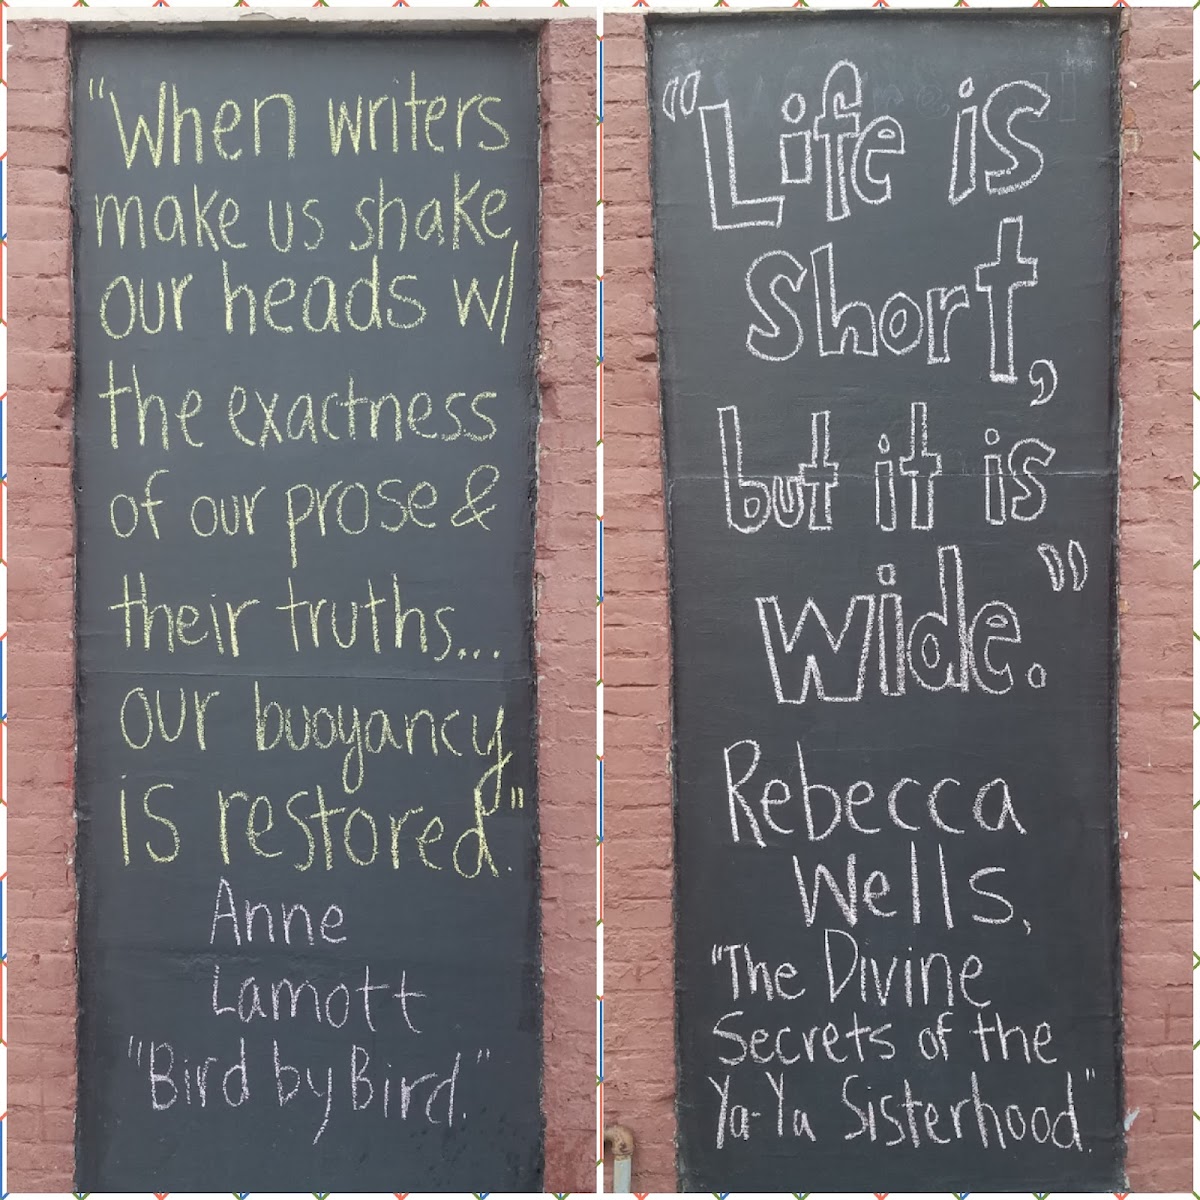 "When writers
make us shake
our heads w/
the exactness
of our prose &
their truths...
our buoyancy
is restored."
Anne
Lamott
"Bird by Bird."
"Life is
short,
but it is
wide."
Rebecca
Wells,
"The Divine
Secrets of the
Ya-Ya Sisterhood."